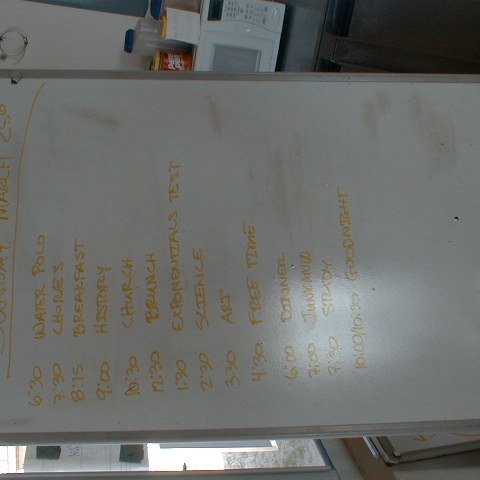 SUNDAY MARCH 25th
6:30 WATER POLO
7:30 CHORES
8:15 BREAKFAST
9:00 HISTORY
10:30 CHURCH
12:30 BRUNCH
1:30 EXPONONTIALS TEST
2:30 SCIENCE
3:30 ART
4:30 FREE TIME
6:00 DINNER
7:00
8:30 STUDY
10:00/10:30 GOODNIGHT